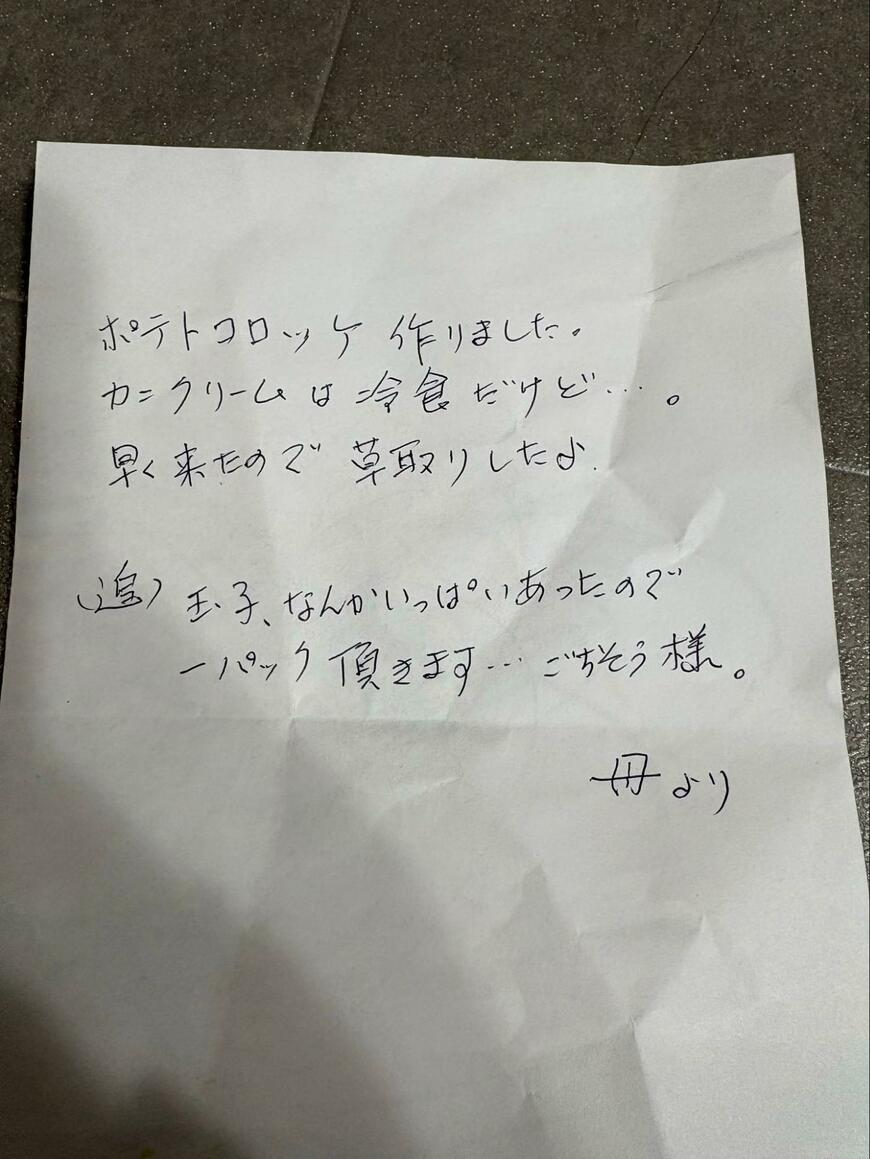 ポテトコロッケ 作りました。
カニクリームは冷食だけど…。
早く来たので 草取りしたよ.
(追) 玉子、なんかいっぱいあったので
一パック 頂きます… ごちそう様。
母より